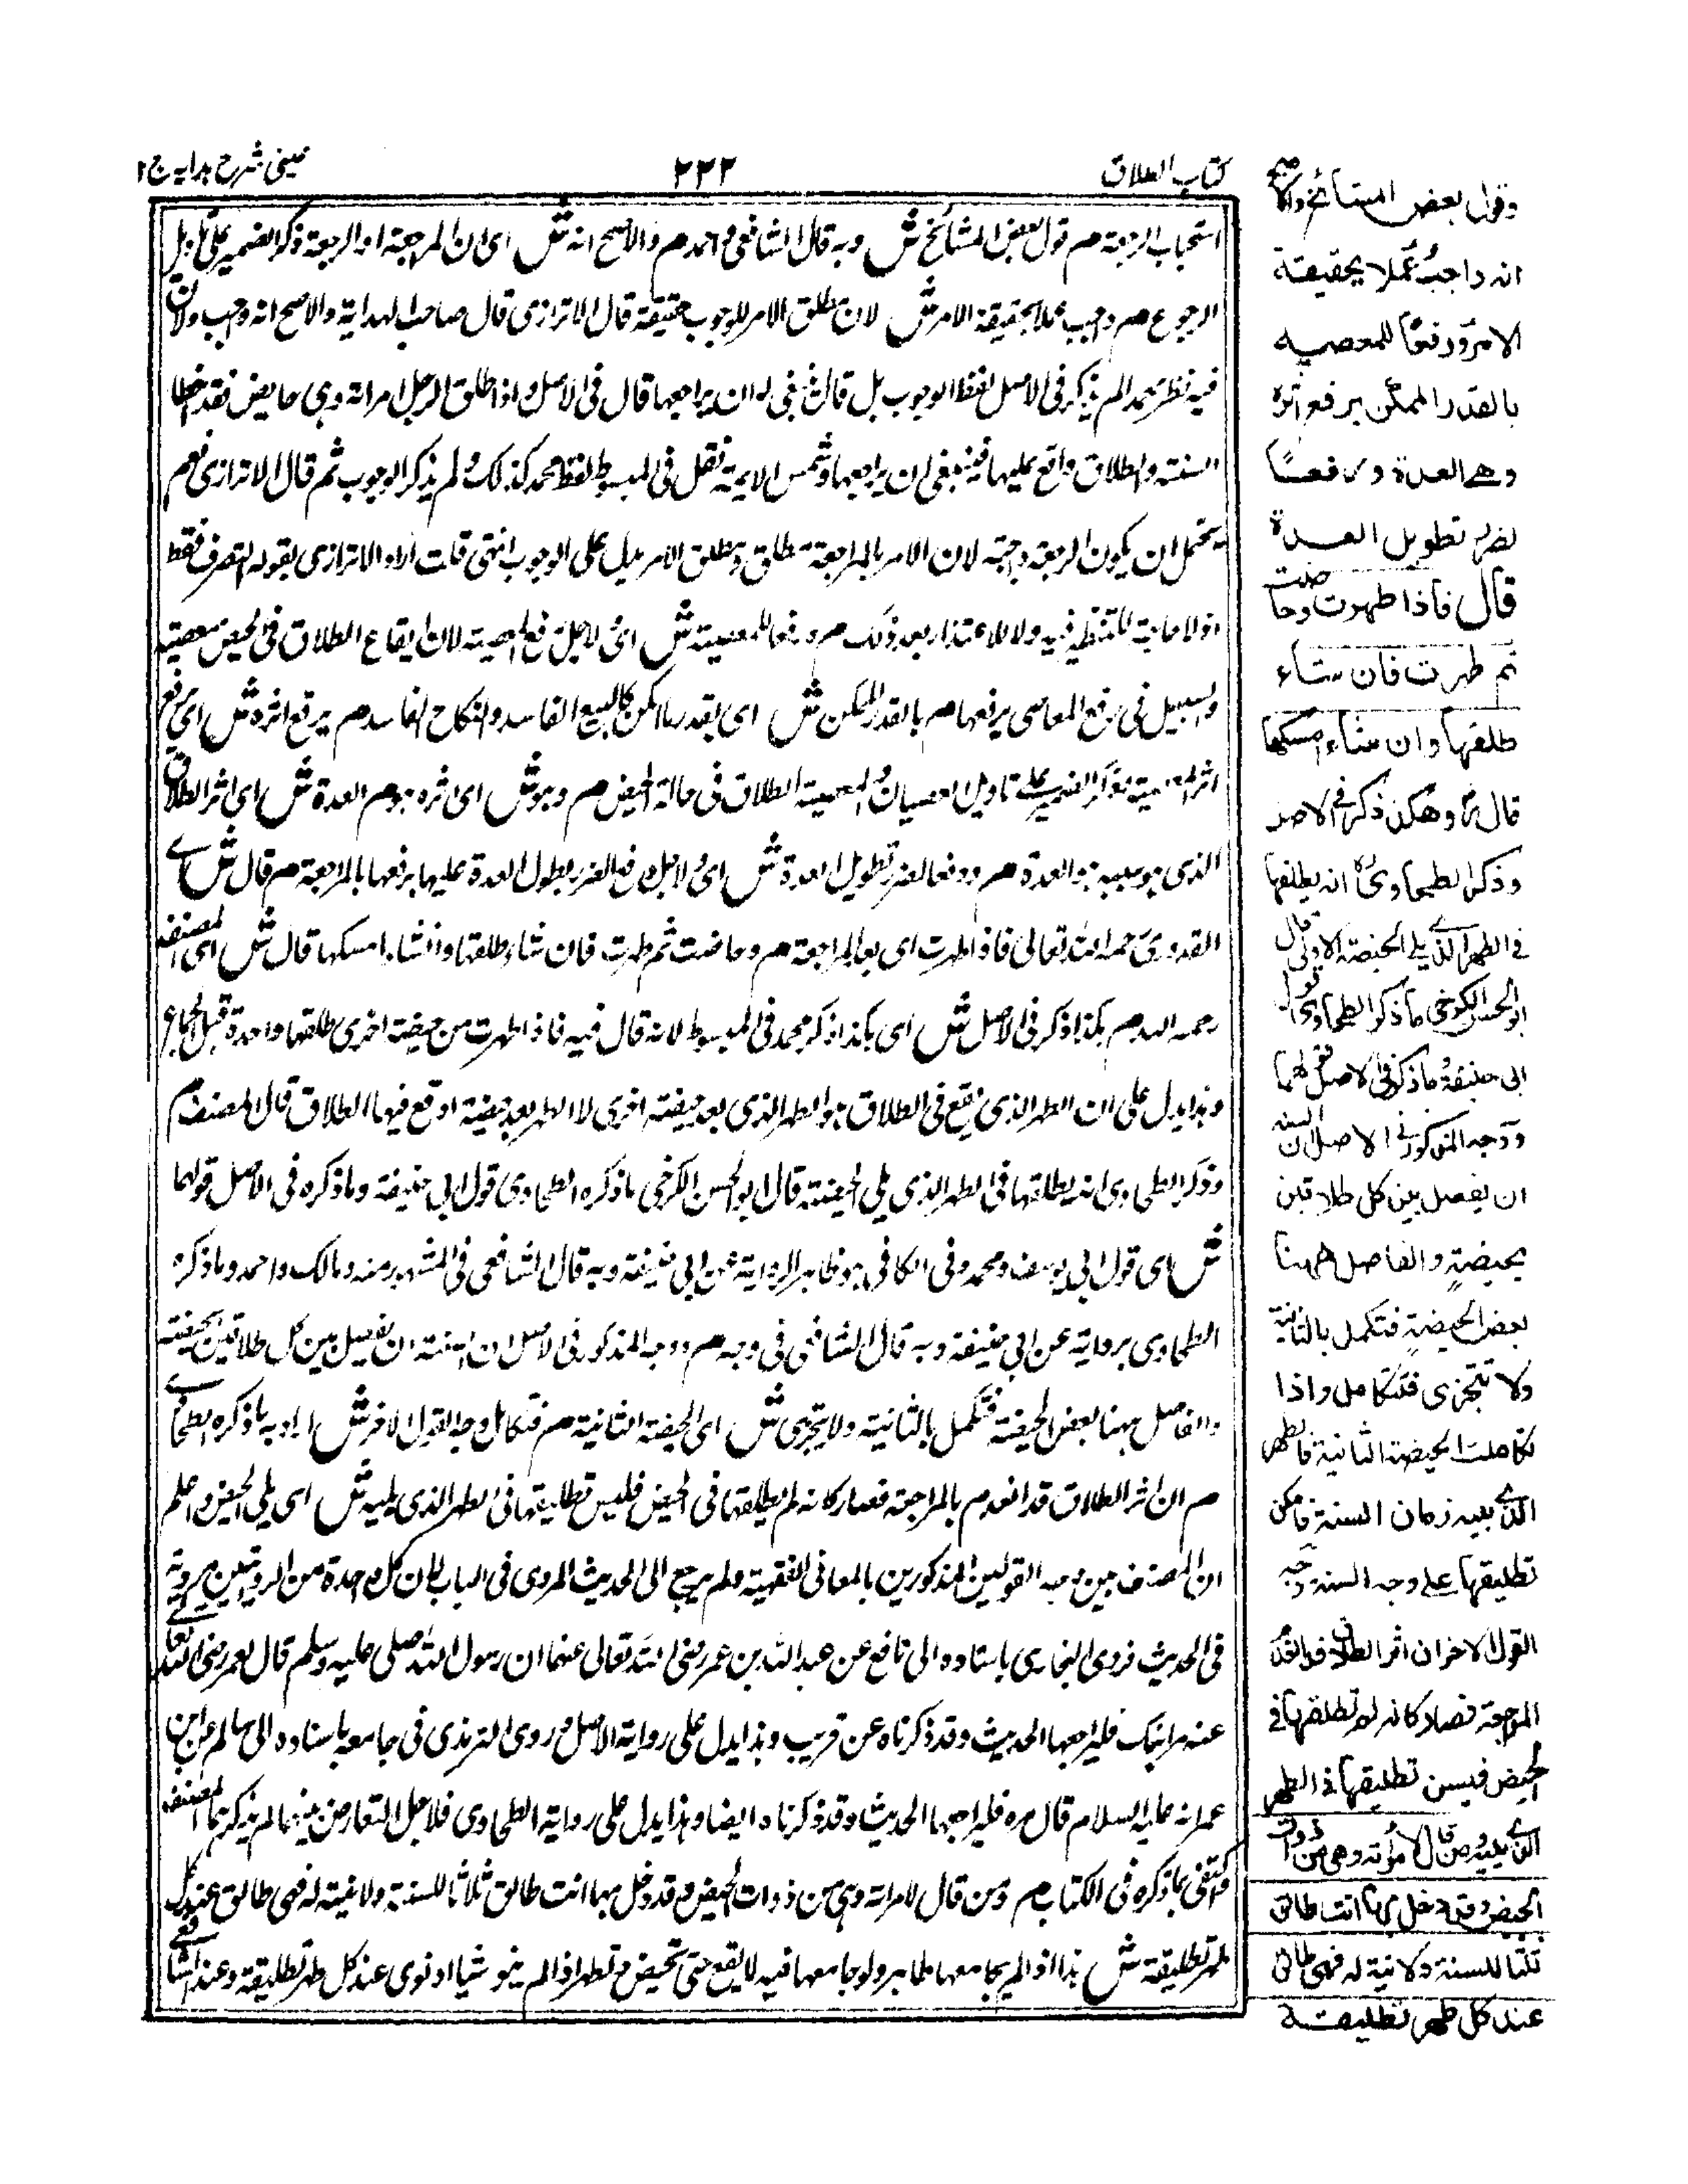 كتاب الطلاق
٢٣٢
عينى شرح هدايه ج ٢
استحباب الرجعة م قول بعض المشائخ ش وبه قال الشافعى واحمد م والاصح انه ش اى ان المراجعة او الرجعة ذكر الضمير على تاويل
الرجوع م واجب عملا بحقيقة الامر ش لان مطلق الامر للوجوب حقيقة قال الاترازى قال صاحب الهداية والاصح انه واجب ولان
فيه نظر محمد الم يذكر فى الاصل لفظ الوجوب بل قال ينبغى له ان يراجعها قال فى الاصل واذا طلق الرجل امراته وهى حايض فقد اخطا
السنة والطلاق واقع عليها فينبغى ان يراجعها وشمس الايمة نقل فى المبسوط لفظ محمد كذلك ولم يذكر الوجوب ثم قال الاترازى نعم
يحتمل ان يكون الرجعة واجبة لان الامر بالمراجعة مطلق ومطلق الامر يدل على الوجوب انتهى قلت اراد الاترازى بقوله التصرف فقط
ولا حاجة للتنظير فيه ولا للاعتذار بعد ذلك م ورفعا للمعصية ش اى لاجل رفع المعصية لان ايقاع الطلاق فى الحيض معصية
والسبيل فى رفع المعاصى يرفعها م بالقدر الممكن ش اى بقدر ما امكن كالبيع الفاسد والنكاح الفاسد م برفع اثره ش اى يرفع
اثر المعصية ذكر الضمير على تاويل العصيان والمعصية الطلاق فى حالة الحيض م وهو ش اى اثره هو م العدة ش اى اثر الطلاق
الذى هو سببه هو العدة م ودفعا لضرر تطويل العدة ش اى ولاجل دفع الضرر بطول العدة عليها برفعها بالمراجعة م قال ش اے
القدورى رحمه الله تعالى فاذا طهرت اى بعد المراجعة م وحاضت ثم طهرت فان شاء طلقها وان شاء امسكها قال ش اى المصنف
رحمه الله م هكذا ذكر فى الاصل ش اى هكذا ذكر محمد فى المبسوط لانه قال فيه فاذا طهرت من حيضة اخرى طلقها واحدة قبل الجماع
وهذا يدل على ان الطهر الذى يقع فى الطلاق هو الطهر الذى بعد حيضة اخرى لا الطهر بعد حيضة اوقع فيها الطلاق قال المصنف م
وذكر الطحاوى انه يطلقها فى الطهر الذى يلى الحيضة قال ابو الحسن الكرخى ما ذكره الطحاوى قول ابى حنيفة وما ذكره فى الاصل قولهما
ش اى قول ابى يوسف ومحمد وفى الكافى هو ظاهر الرواية عن ابى حنيفة وبه قال الشافعى فى المشهور منه ومالك واحمد وما ذكره
الطحاوى برواية عن ابى حنيفة وبه قال الشافعى فى وجه م ووجه المذكور فى الاصل ان السنة ان يفصل بين كل طلاقين بحيضة
والفاصل ههنا بعض الحيضة فتكمل بالثانية ولا يتجزى ش اى الحيضة الثانية م فتكامل وجه القول الاخر ش اراد به ما ذكره الطحاوے
م ان اثر الطلاق قد انعدم م بالمراجعة فصار كانه لم يطلقها فى الحيض فليس تطليقها فى الطهر الذى يليه ش اى يلى الحيض واعلم
ان المصنف بين وجه القولين المذكورين بالمعانى الفقهية ولم يرجع الى الحديث المروى فى الباب لان كل واحدة من الروايتين مروية
فى الحديث فروى البخارى باسناده الى نافع عن عبد الله بن عمر رضى الله تعالى عنهما ان رسول الله صلى عليه وسلم قال لعمر رضى الله تعالے
عنه مر ابنك فليراجعها الحديث وقد ذكرناه عن قريب وهذا يدل على رواية الاصل وروى الترمذى فى جامعه باسناده الى سالم عن ابن
عمر انه عليه السلام قال مره فليراجعها الحديث وقد ذكرناه ايضا وهذا يدل على رواية الطحاوى فلاجل التعارض بينهما لم يذكرهما المصنف
واكتفى بما ذكره فى الكتاب م ومن قال لامراته وهى من ذوات الحيض وقد دخل بها انت طالق ثلاثا للسنة ولا نية له فهى طالق عند كل
طهر تطليقة ش هذا اذا لم يجامعها طاهر ولو جامعها فيه لا يقع حتى تحيض وتطهر اذا لم ينو شيا او نوى عند كل طهر تطليقة وعند الشافعے
وقول بعض المشائخ والاصح
انه واجبٌ عملا بحقيقة
الامر ورفعًا للمعصية
بالقدر الممكن برفع اثره
وهے العدة ودفعًا
لضرر تطويل العدة
قال فاذا طهرت وحاضت
ثم طهرت فان شاء
طلقها وان شاء امسكها
قال رح وهكذا ذكر فى الاصل
وذكر الطحاوى رح انه يطلقها
فى الطهر الذے يلى الحيضة الاولى قال
ابو الحسن الكرخى ما ذكر الطحاوى قول
ابى حنيفة وما ذكر فى الاصل قولهما
ووجه المذكور فى الاصل ان السنة
ان يفصل بين كل طلاقين
بحيضةٍ والفاصل ههنا
بعض الحيضةِ فتكمل بالثانية
ولا تتجزى فتتكامل واذا
تكاملت الحيضة الثانية فالطهر
الذے يليه زمان السنة فامكن
تطليقها على وجه السنة وجه
القول الاخر ان اثر الطلاق قد انعدم
المراجعة فصار كانه لم يطلقها فى
الحيض فيسن تطليقها فى الطهر
الذے يليه ومن قال لامرأته وهى من ذوات
الحيض وقد دخل بها انت طالق
ثلثا للسنة ولا نية له فهى طالق
عند كل طهر تطليقة